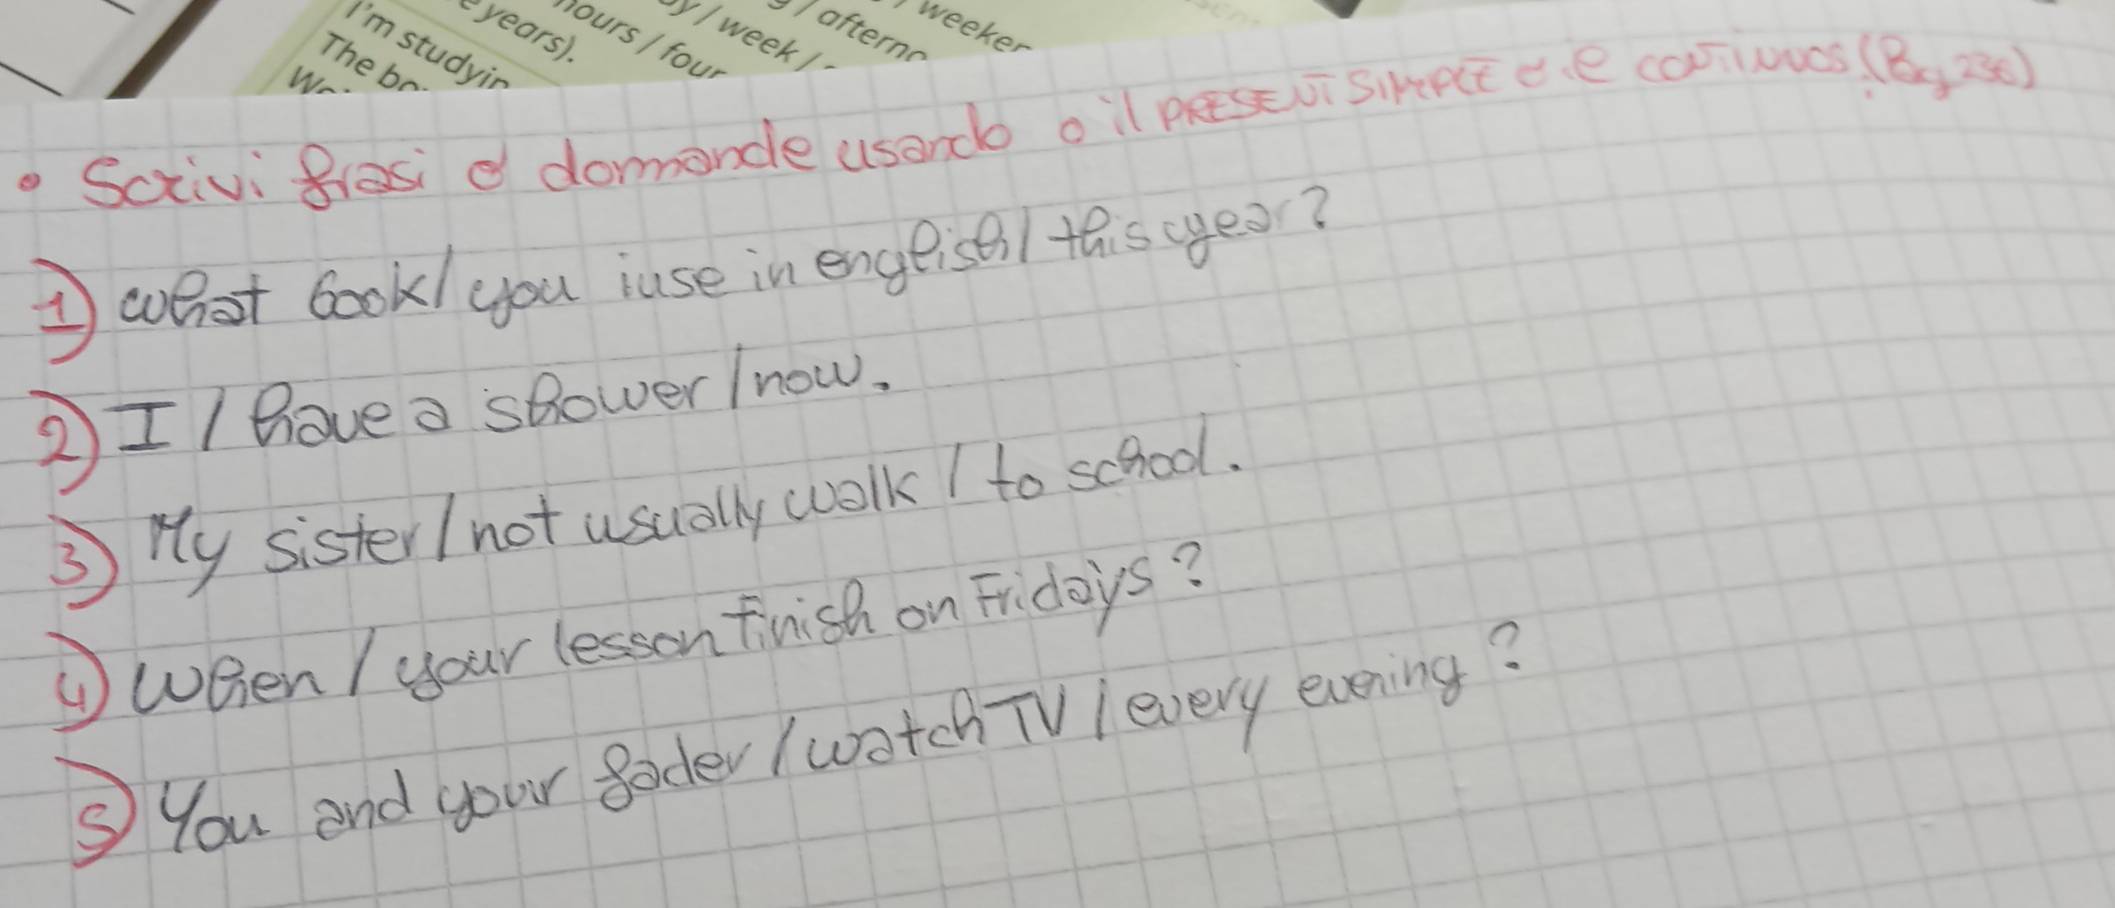 I'm studyin
The bo
e years).
hours / four
y / week /
/ afterno
weeker
• Scrivi frasi o domande usando o il PRESENT SIMPLE o
1) what book / you iuse in english / this year?
2) I / have a shower / now.
3) My sister / not usually walk / to school.
4) when / your lesson finish on Fridays?
5) You and your fader / watch TV / every evening?